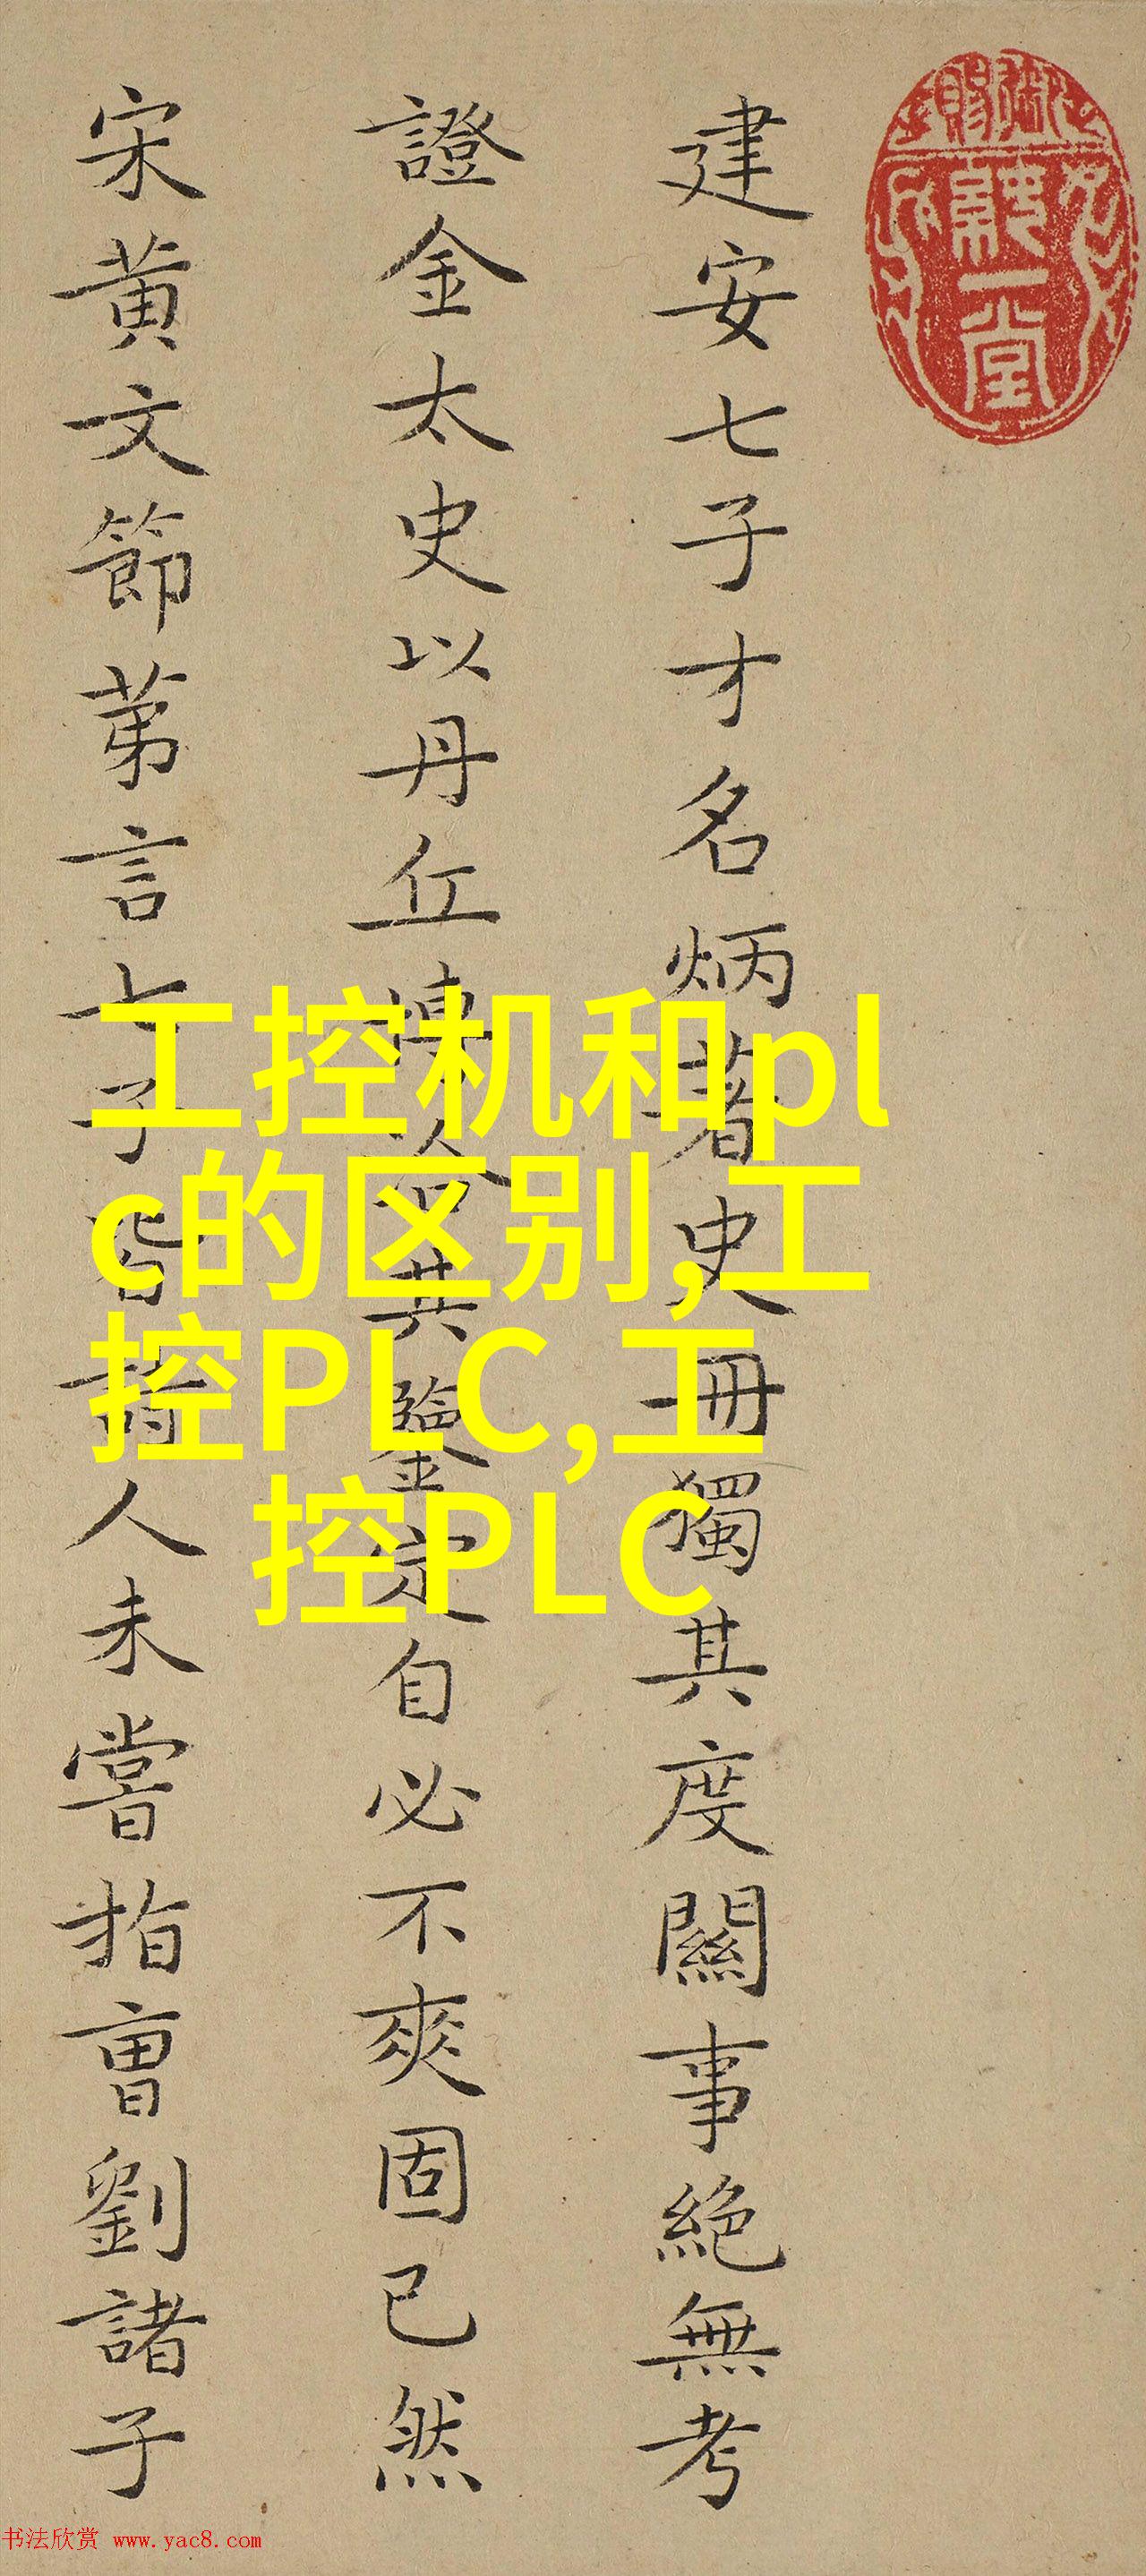 建安七子才名炳著史冊獨其度關事絕無考
證金太史以丹丘博洽共鑒定自必不爽固已然
宋黄文節苐言七子皆詩人未嘗指曹劉諸子
工控机和pl
c的区别,工
控PLC,工
控PLC
书法欣赏 www.yac8.com